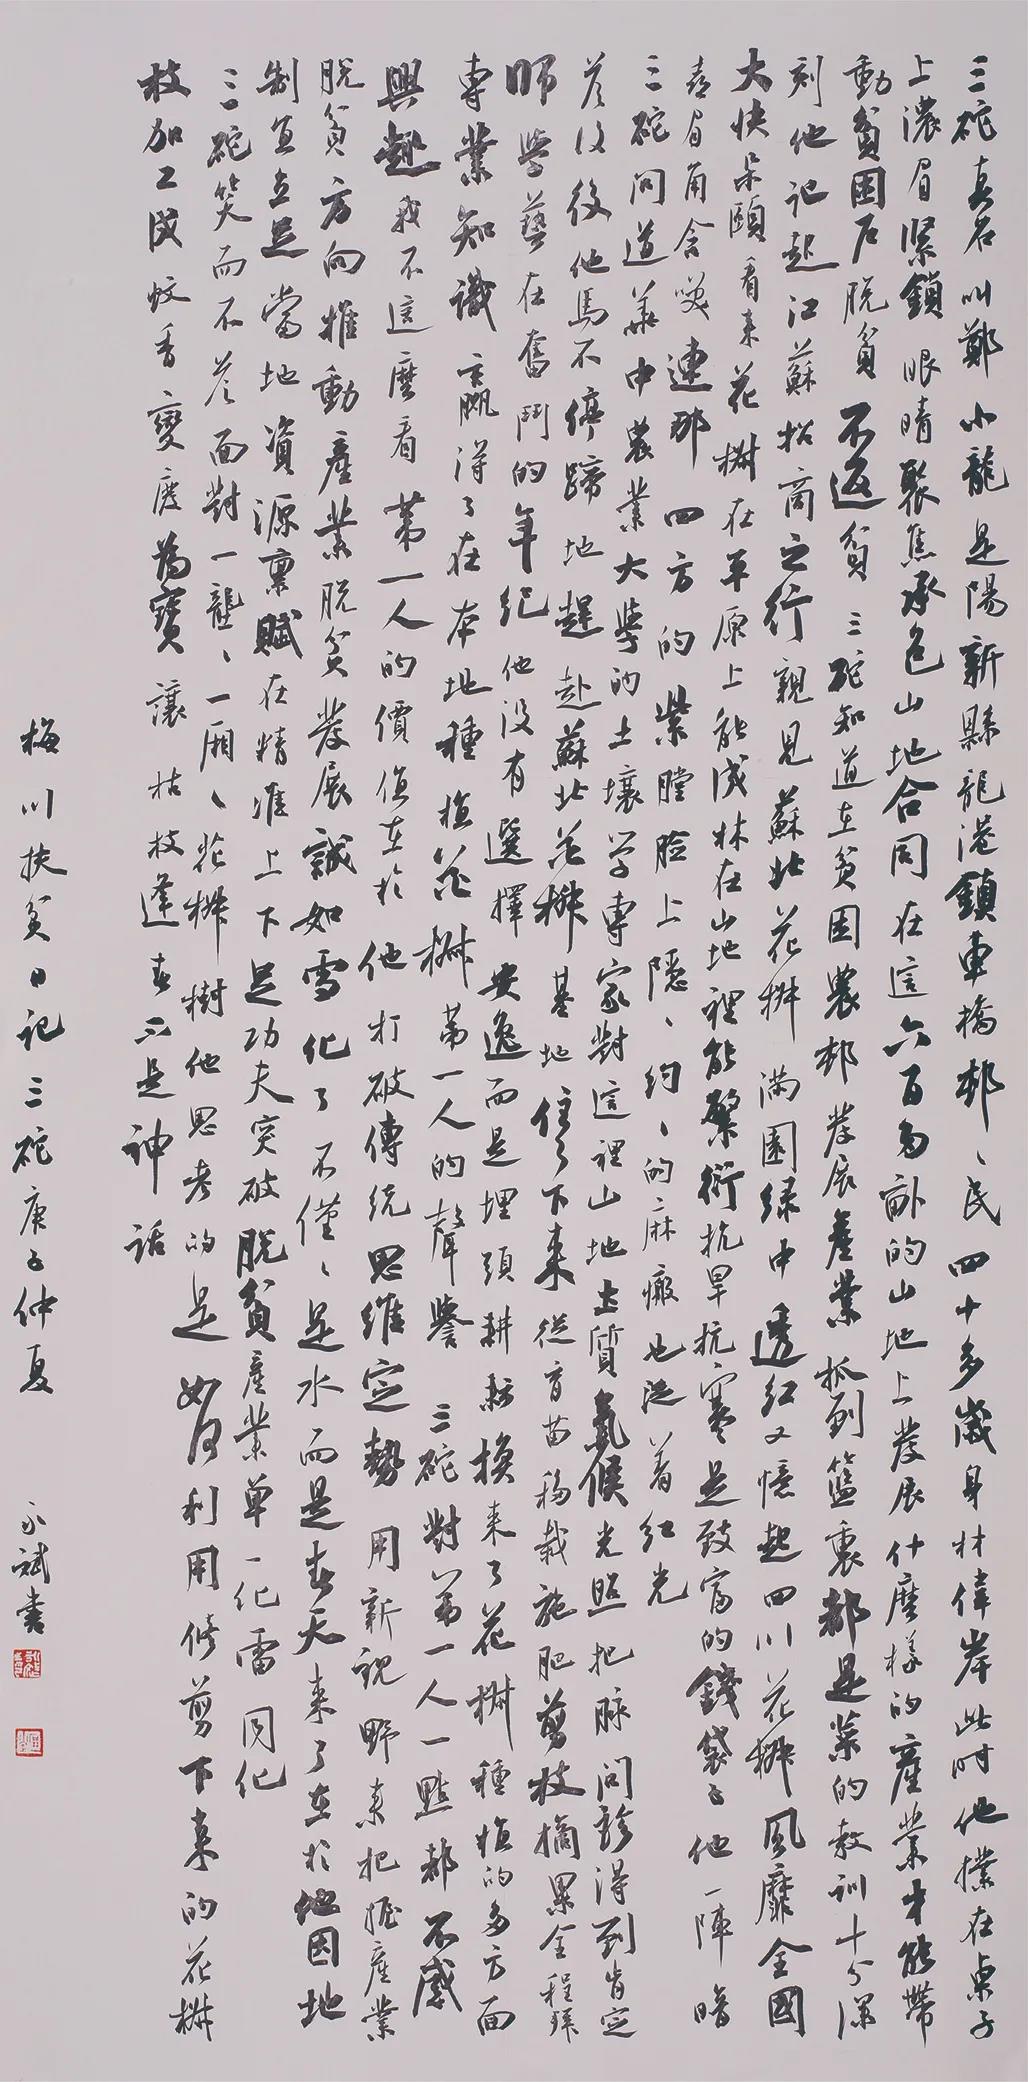 三砣真名叫鄭小龍是陽新縣龍港鎮車橋邨邨民四十多歲身材偉岸此時他撲在桌子
上濃眉緊鎖眼睛聚焦承包山地合同在這六百多畝的山地上發展什麼樣的產業才能帶
動貧困户脫貧不返貧三砣知道在貧困農邨發展產業抓到籃裏都是菜的教訓十分深
刻他記起江蘇招商之行親見蘇北花椒滿園绿中透红又憶起四川花椒風靡全國
大快朵頤看来花椒在平原上能成林在山地裡能繁衍抗旱抗寒是致富的錢袋子他一陣暗
喜眉角含笑連那四方的紫膛脸上隱隱约约的麻瘢也泛着红光
三砣问道華中農業大學的土壤学專家對這裡山地土質氣候光照把脉问診得到肯定
答復後他馬不停蹄地趕赴蘇北花椒基地住了下来從育苗移栽施肥剪枝摘果全程拜
師學藝在奮鬥的年纪他没有選擇安逸而是埋頭耕耘换来了花椒種植的多方面
專業知識贏得了在本地種植花椒第一人的聲譽三砣對第一人一點都不感
興趣我不這麼看第一人的價值在於他打破傳统思维定勢用新视野来把握產業
脫貧方向推動產業脫貧發展誠如雪化了不僅僅是水而是春天来了在於他因地
制宜立足當地資源稟赋在精准上下足功夫突破脫貧產業单一化雷同化
三砣笑而不答面對一壟壟一厢厢花椒樹他思考的是如何利用修剪下来的花椒
枝加工成蚊香變廢為寶讓枯枝逢春不是神话
梅川扶贫日记三砣庚子仲夏 永斌書